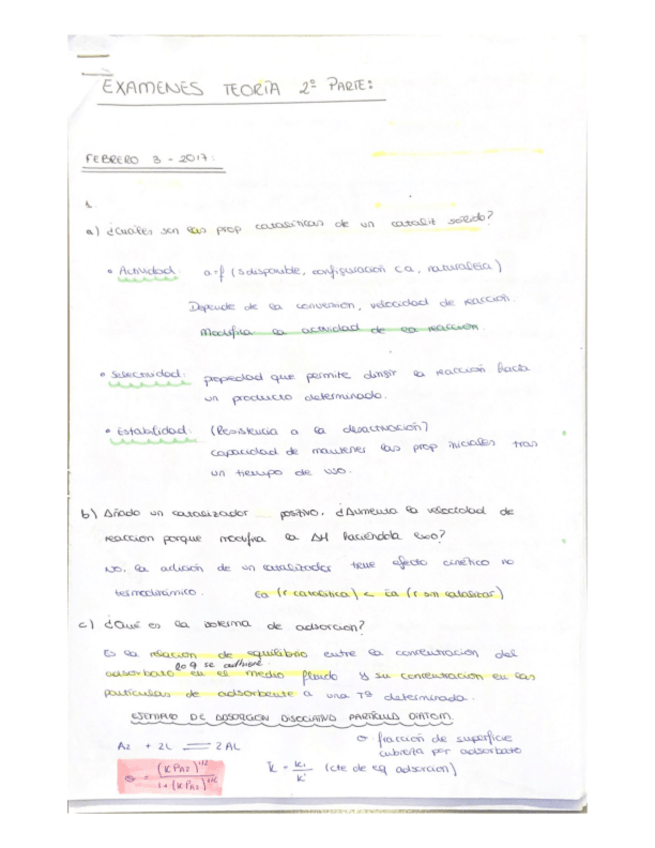 EXAMENES TEORIA 2º PARTE:
FEBRERO 3 - 2017:
1.
a) ¿Cuáles son las prop catalíticas de un catalit sólido?
• Actividad: a=f (s disponible, configuración ca, naturaleza)
Depende de la conversion, velocidad de reacción.
Modifica la actividad de la reacción.
• Selectividad: propiedad que permite dirigir la reacción hacia
un producto determinado.
• Estabilidad: (Resistencia a la desactivación)
capacidad de mantener las prop iniciales tras
un tiempo de uso.
b) Añado un catalizador positivo, ¿Aumenta la velocidad de
reaccion porque modifica la ΔH haciéndola exo?
No, la adición de un catalizador tiene efecto cinético no
termodinámico. Ea (r catalítica) < Ea (r sin catalizar)
c) ¿Qué es la isoterma de adsorcion?
Es la relación de equilibrio entre la concentración del
lo q se adhiere
adsorbato en el medio fluido y su concentración en las
partículas de adsorbente a una Tª determinada.
EJEMPLO DE ADSORCION DISOCIATIVO PARTÍCULAS DIATOM.
A2 + 2L ⇌ 2AL
θ = (K PA2)^1/2 / 1+(K PA2)^1/2
K = K1 / K' (cte de eq adsorcion)
θ fracción de superficie
cubierta por adsorbato